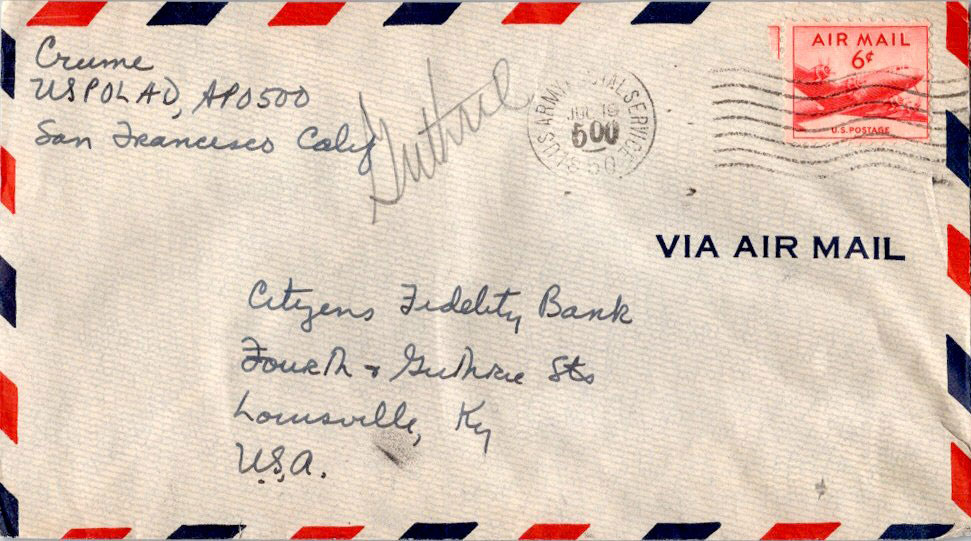 Crume
USPOLAD, APO 500
San Francisco Calif
Guthrie
U.S. ARMY POSTAL SERVICE
JUL 19
500
AIR MAIL
6¢
U.S. POSTAGE
VIA AIR MAIL
Citizens Fidelity Bank
Fourth & Guthrie Sts
Louisville, Ky
U.S.A.